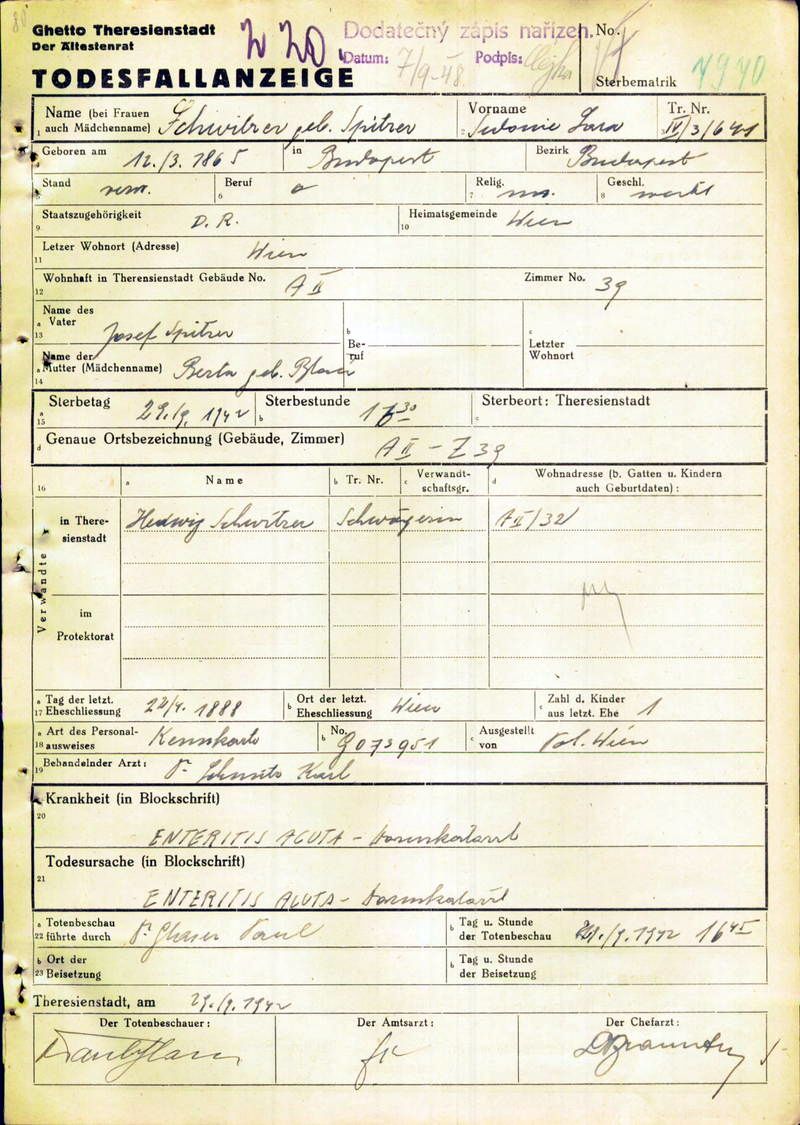 Ghetto Theresienstadt
Der Ältestenrat
TODESFALLANZEIGE
Dodatečný zápis nařízen.
Datum: 7/9-48 Podpis:
No.
Sterbematrik
Name (bei Frauen auch Mädchenname) Schwitzer geb. Spitzer
Vorname Sidonie Sara
Tr. Nr. IV/3/641
Geboren am 12./3. 1865 in Budapest Bezirk Budapest
Stand verw. Beruf Relig. Geschl. weibl
Staatszugehörigkeit D. R. Heimatsgemeinde Wien
Letzer Wohnort (Adresse) Wien
Wohnhaft in Theresienstadt Gebäude No. A II Zimmer No. 39
Name des Vater Josef Spitzer
Name der Mutter (Mädchenname) Berta geb. Blau
Beruf
Letzter Wohnort
Sterbetag 29./9. 1942 Sterbestunde 16 30 Sterbeort: Theresienstadt
Genaue Ortsbezeichnung (Gebäude, Zimmer) A II - Z 39
16 Name Tr. Nr. Verwandtschaftsgr. Wohnadresse (b. Gatten u. Kindern auch Geburtdaten):
Verwandte
in Theresienstadt Hedwig Schwitzer Schwägerin A II/32
im Protektorat
17 Tag der letzt. Eheschliessung 1888 Ort der letzt. Eheschliessung Wien Zahl d. Kinder aus letzt. Ehe 1
18 Art des Personalausweises Kennkarte No. 9073951 Ausgestellt von Pol. Wien
19 Behandelnder Arzt: Dr Karl
Krankheit (in Blockschrift)
20 ENTERITIS ACUTA - Darmkatarrh
Todesursache (in Blockschrift)
21 ENTERITIS ACUTA - Darmkatarrh
22 Totenbeschau führte durch Dr Paul Tag u. Stunde der Totenbeschau 29./9. 1942 16 45
23 Ort der Beisetzung Tag u. Stunde der Beisetzung
Theresienstadt, am 29./9. 1942
Der Totenbeschauer: Der Amtsarzt: Der Chefarzt: